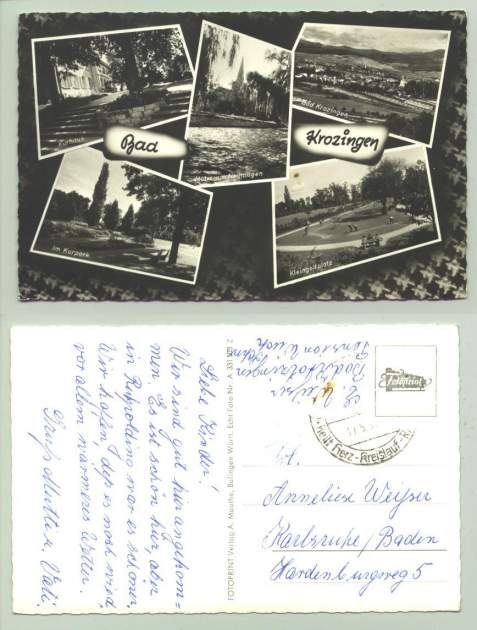 Kurhaus
Bad
Bad Krozingen
Krozingen
Im Kurpark
Kleingolfplatz
Liebe Kinder!
Wir sind gut hier angekom=
men. Es ist schön hier, aber
in Ruhpolding war es schöner.
Wir hoffen, daß es noch wird
vor allem wärmeres Wetter.
Gruß Mutter u. Vati.
FOTOPRINT Verlag A. Mauthe, Balingen Württ. Echt Foto Nr. A 331
Bad Krozingen
Pension
Fotoprint
heilt Herz-Kreislauf-
Frl.
Anneliese Weißer
Karlsruhe/Baden
Hardenburgweg 5